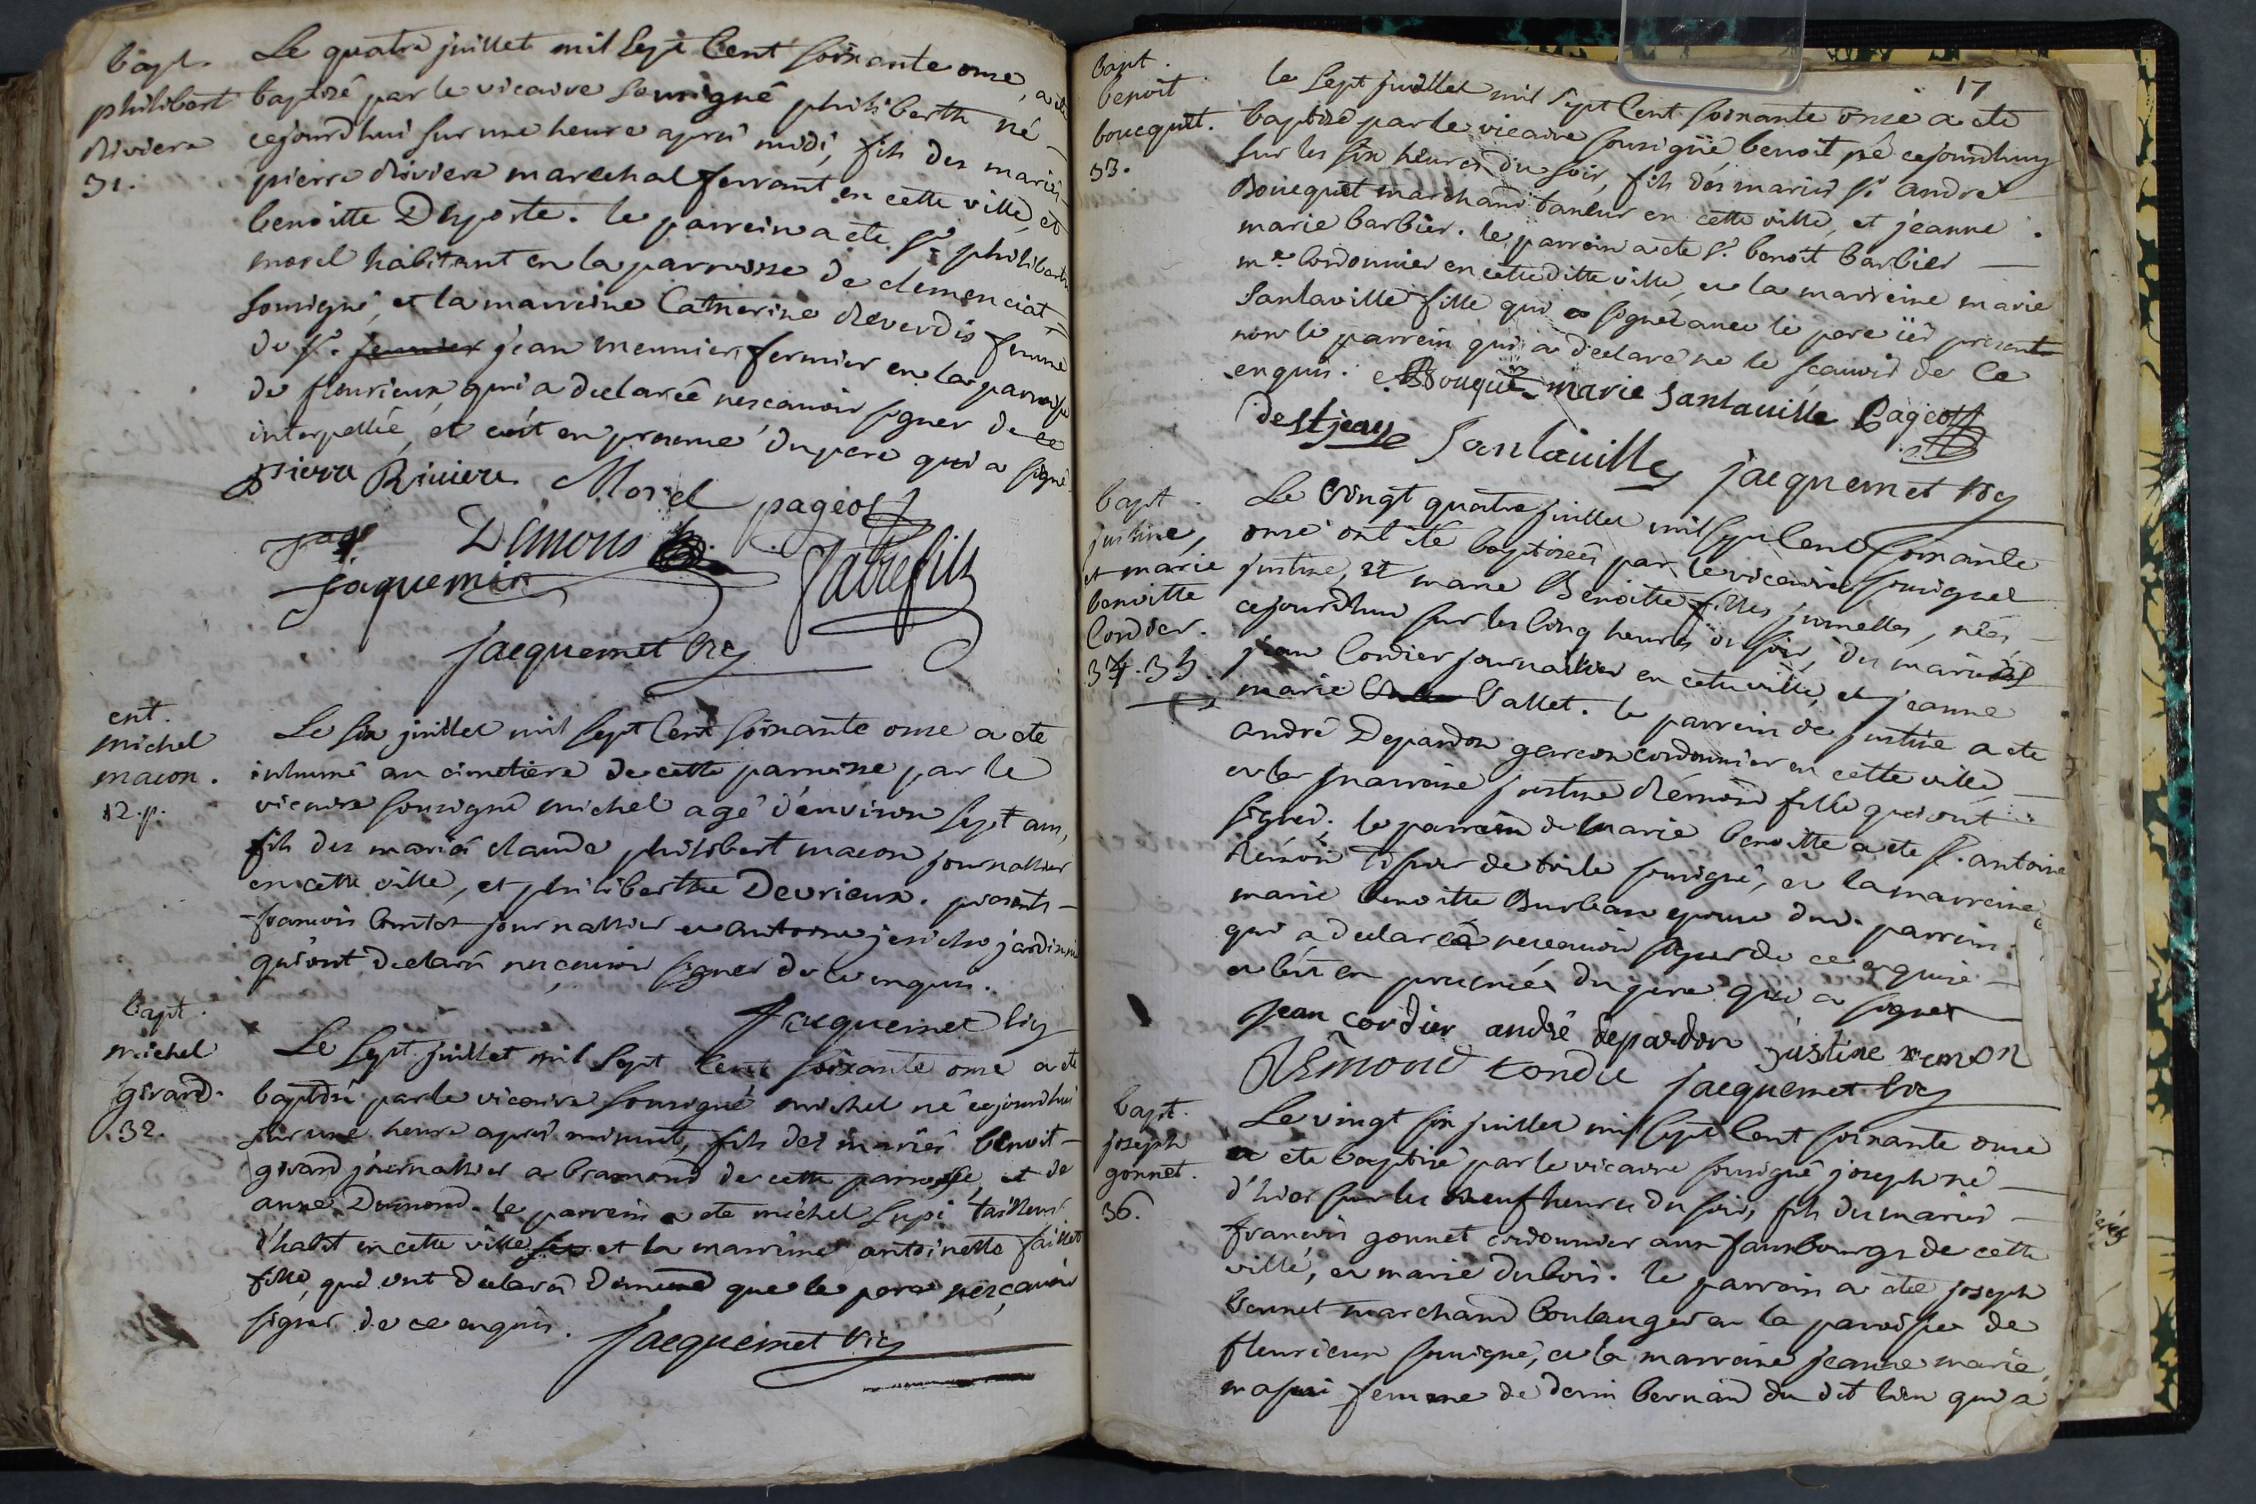 bapt.
philibert
Riviere
31.
Le quatre juillet mil sept cent soixante onse, a ete
baptisé par le vicaire sousigné philiberth né
cejourd'hui sur une heure apres midi, fils des mariés
pierre Riviere marechal ferrant en cette ville, et
benoitte Duporte. le parrein a ete Sr. philibert
morel habitant en la parroisse de clemenciat
sousigné, et la marreine Catherine Reverdis femme
de Sr. jean meunier, fermier en la parroisse
de fleurieux qui a declaréé ne scavoir signer de ce
interpellée, et c'est en presence du pere qui a signé
pierre Riviere Morel pageott
Dimons
jaquemin fabre fils
Jacquemet vic
ent.
michel
macon.
12. p.
Le six juillet mil sept cent soixante onse a ete
inhumé au cimetiere de cette parroisse par le
vicaire sousigné michel agé d'environ sept ans,
fils des mariés claude philibert macon journallier
en cette ville, et philiberthe Devrieux. presents
francois journallier et antoine jardinier
qui ont declaré ne scavoir signer de ce enquis.
Jacquemet vic
bapt.
michel
girard.
32.
Le sept juillet mil sept cent soixante onse a ete
baptisé par le vicaire sousigné michel né cejourdhui
sur une heure apres minuit, fils des mariés benoit
girard journallier a bramond de cette parroisse, et de
anne Dumond. le parrein a ete michel Lupi tailleur
d'habit en cette ville et la marreine antoinette faillet
fille, qui ont declaré de meme que le pere ne scavoir
signer de ce enquis.
Jacquemet vic
17
bapt.
benoit
boucquet.
33.
le sept juillet mil sept cent soixante onse a ete
baptisé par le vicaire sousigné, benoit né cejourdhuy
sur les six heures du soir, fils des mariés Sr. andre
Boucquet marchand taneur en cette ville, et jeanne
marie barbier. le parrein a ete Sr. benoit barbier
me. cordonnier en cette ditte ville, et la marreine marie
Santaville fille qui a signé avec le pere ici present
non le parrein qui a declaré ne le scavoir de ce
enquis. Bouquet marie Santaville Pageott
de st jean Santaville jacquemet vic
bapt.
justine,
et marie
benoitte
Cordier.
34. 35.
Le vingt quatre juillet mil sept cent soixante
onse ont ete baptisees par le vicaire sousigné
justine, et marie Benoitte filles jumelles, nées
cejourdhui sur les cinq heures du soir, des mariés
jean Cordier journallier en cette ville, et jeanne
marie Vallet. le parrein de justine a ete
andré Depardon garcon cordonnier en cette ville
et la marreine justine Rémon fille qui ont
signés. le parrein de marie benoitte a ete Sr. antoine
Rémon tissier de toile sousigné, et la marreine
marie benoitte Burban epouse dud. parrein
qui a declaréé ne scavoir signer de ce enquise
et c'est en presence du pere qui a signet
jean cordier andré depardon justine remon
Rémond tondu jacquemet vic
bapt.
joseph
gonnet.
36.
Le vingt six juillet mil sept cent soixante onse
a ete baptisé par le vicaire sousigné joseph né
d'hier sur les neuf heures du soir, fils des mariés
francois gonnet cordonnier aux fauxbourgs de cette
ville, et marie dubois. le parrein a ete joseph
bonnet marchand boulanger en la paroisse de
fleurieux sousigné, et la marreine jeanne marie
femme de bernard du dit lieu qui a